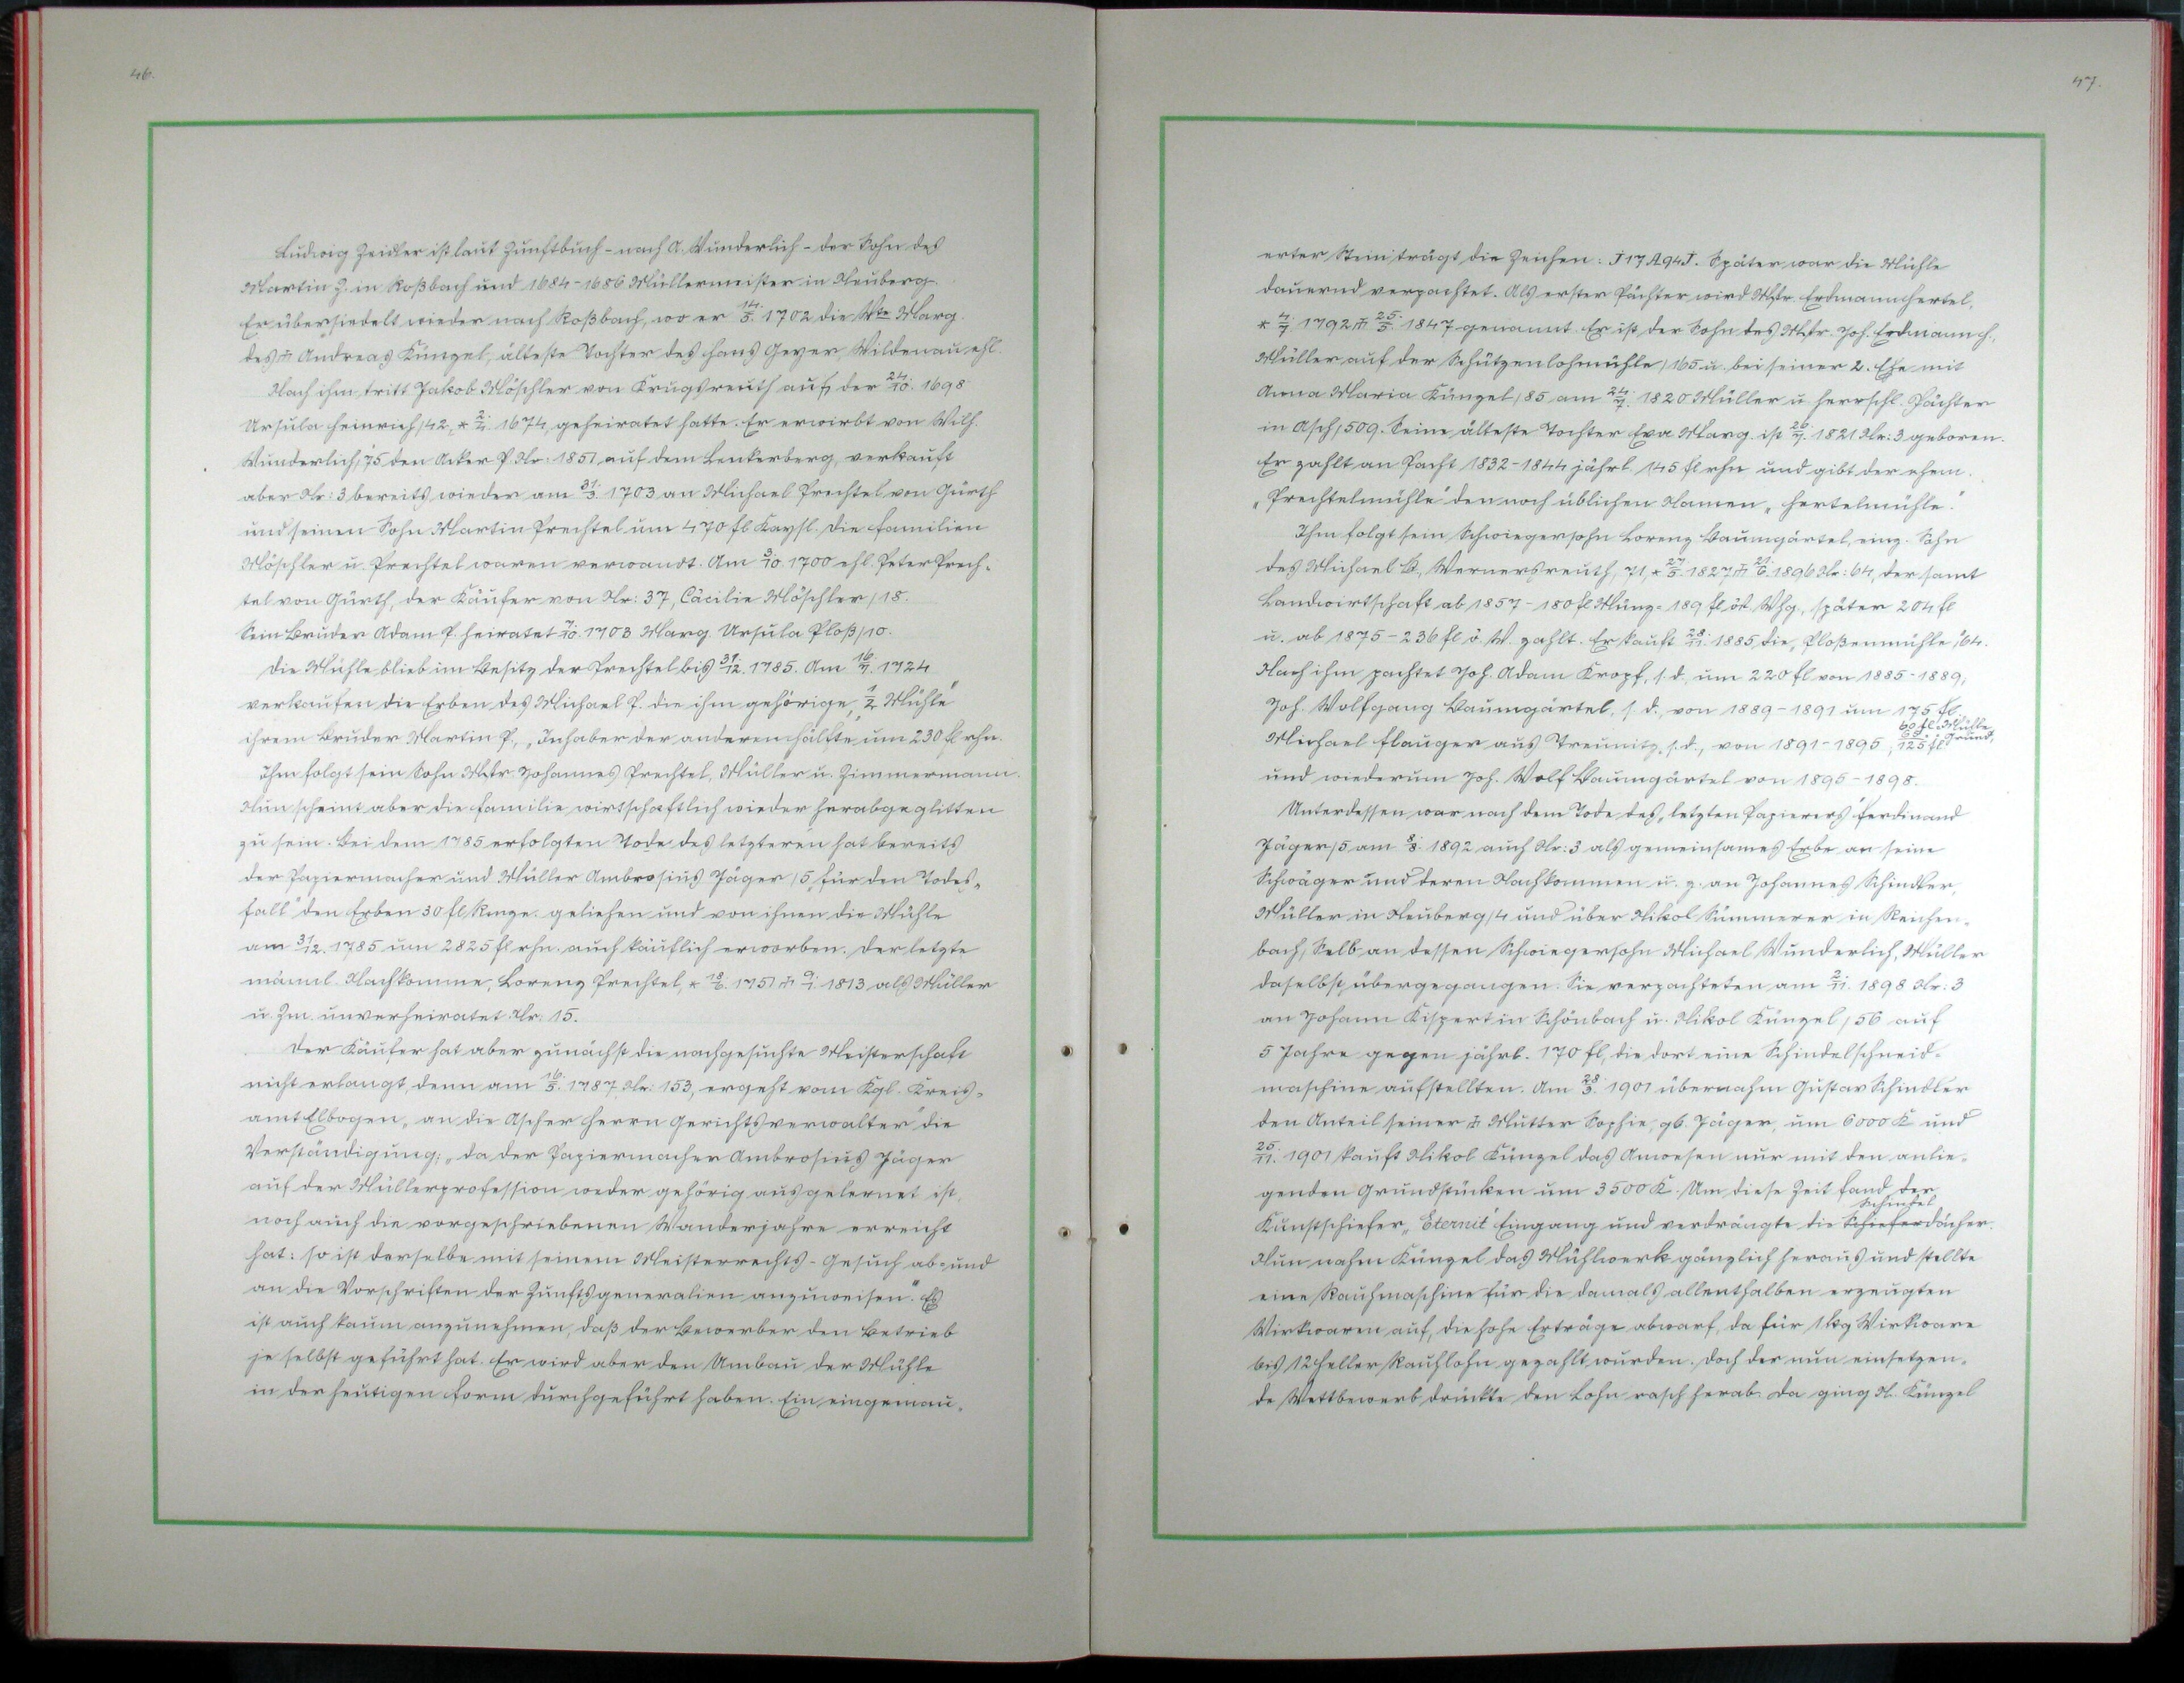 46.
Ludwig Zeidler ist laut Zunftbuch - nach A. Wunderlich - der Sohn des
Martin Z. in Roßbach und 1684-1686 Müllermeister in Neuberg.
Er übersiedelt wieder nach Roßbach, wo er 14./5. 1702 die Wte Marg.
des Andreas Künzel, älteste Tochter des Hans Geyer, Wildenau ehl.
Nach ihm tritt Jakob Möschler von Krugsreuth auf, der 24./10. 1698
Ursula Heinrich/42, * 2./4. 1674, geheiratet hatte. Er erwirbt von Wilh.
Wunderlich/75 den Acker P. Nr. 1851 auf dem Lenkerberg, verkauft
aber Nr: 3 bereits wieder am 31./3. 1703 an Michael Prechtel von Gürth
und seinen Sohn Martin Prechtel um 470 fl Kaysl. Die Familien
Möschler u. Prechtel waren verwandt. Am 3./10. 1700 ehl. Peter Prech-
tel von Gürth, der Käufer von Nr: 37, Cäcilie Möschler/18.
Sein Bruder Adam P. heiratet 7./10. 1703 Marg. Ursula Ploß/10.
Die Mühle blieb im Besitz der Prechtel bis 31./12. 1785. Am 16./7. 1724
verkaufen die Erben des Michael P. die ihm gehörige „1/2 Mühle"
ihrem Bruder Martin P., „Inhaber der anderen Hälfte", um 230 fl rhn.
Ihm folgt sein Sohn Mstr. Johannes Prechtel, Müller u. Zimmermann.
Nun scheint aber die Familie wirtschaftlich wieder herabgeglitten
zu sein. Bei dem 1785 erfolgten Tode des letzteren hat bereits
der Papiermacher und Müller Ambrosius Jäger/5 „für den Todes-
fall" den Erben 30 fl Kmze. geliehen und von ihnen die Mühle
am 31/12. 1785 um 2825 fl rhn. auch käuflich erworben. Der letzte
männl. Nachkomme, Lorenz Prechtel, * 18./6. 1751 9./1. 1813 als Müller
u. Zm. unverheiratet Nr: 15.
Der Käufer hat aber zunächst die nachgesuchte Meisterschaft
nicht erlangt, denn am 16./5. 1787, Nr: 153, ergeht vom Kgl. Kreis-
amt Elbogen „an die Ascher Herrn Gerichtsverwalter" die
Verständigung: „da der Papiermacher Ambrosius Jäger
auf der Müllerprofession weder gehörig ausgelernet ist,
noch auch die vorgeschriebenen Wanderjahre erreicht
hat: so ist derselbe mit seinem Meisterrechts-Gesuch ab- und
an die Vorschriften der Zunftsgeneralien anzuweisen." Es
ist auch kaum anzunehmen, daß der Bewerber den Betrieb
je selbst geführt hat. Er wird aber den Umbau der Mühle
in der heutigen Form durchgeführt haben. Ein eingemau-
47.
erter Stein trägt die Zeichen: J 17 A 94 J. Später war die Mühle
dauernd verpachtet. Als erster Pächter wird Mstr. Erdmann Hertel,
* 4./7. 1792 25./5. 1847 genannt. Er ist der Sohn des Mstr. Joh. Erdmann H.,
Müller auf der Schützenlohmühle/165 u. bei seiner 2. Ehe mit
Anna Maria Künzel/85 am 24./7. 1820 Müller u. herrschl. Pächter
in Asch/509. Seine älteste Tochter Eva Marg. ist 26./7. 1821 Nr: 3 geboren.
Er zahlt an Pacht 1832-1844 jährl. 145 fl rhn und gibt der ehem.
„Prechtelmühle" den noch üblichen Namen „Hertelmühle".
Ihm folgt sein Schwiegersohn Lorenz Baumgärtel, einz. Sohn
des Michael B., Wernersreuth, 71, * 27./5. 1827 26./6. 1896 Nr: 64, der samt
Landwirtschaft ab 1857 - 180 fl Münz = 189 fl öst. Whg., später 204 fl
u. ab 1875 - 236 fl ö. W. zahlt. Er kauft 28./11. 1885 die „Ploßenmühle"/64.
Nach ihm pachtet Joh. Adam Kropf, s. d., um 220 fl von 1885-1889,
Joh. Wolfgang Baumgärtel, s. d., von 1889-1891 um 175 fl,
60 fl Mühle
Michael Flauger aus Treunitz, s. d., von 1891-1895, 125 fl Grund,
und wiederum Joh. Wolf Baumgärtel von 1895-1898.
Unterdessen war nach dem Tode des „letzten Papierers" Ferdinand
Jäger/5 am 8./8. 1892 auch Nr: 3 als gemeinsames Erbe an seine
Schwäger und deren Nachkommen u. z. an Johannes Schindler,
Müller in Neuberg/4 und über Nikol Sümmerer in Reichen-
bach, Selb an dessen Schwiegersohn Michael Wunderlich, Müller
daselbst, übergegangen. Sie verpachteten am 2./11. 1898 Nr: 3
an Johann Kispert in Schönbach u. Nikol Künzel/56 auf
5 Jahre gegen jährl. 170 fl, die dort eine Schindelschneid-
maschine aufstellten. Am 28./3. 1901 übernahm Gustav Schindler
den Anteil seiner Mutter Sophie, gb. Jäger, um 6000 K und
25./11. 1901 kauft Nikol Künzel das Anwesen nur mit den anlie-
genden Grundstücken um 3500 K. Um diese Zeit fand der
Schindel
Kunstschiefer „Eternit" Eingang und verdrängte die Schieferdächer.
Nun nahm Künzel das Mühlwerk gänzlich heraus und stellte
eine Rauhmaschine für die damals allenthalben erzeugten
Wirkwaren auf, die hohe Erträge abwarf, da für 1 kg Wirkware
bis 12 Heller Rauhlohn gezahlt wurden. Doch der nun einsetzen-
de Wettbewerb drückte den Lohn rasch herab. Da ging N. Künzel